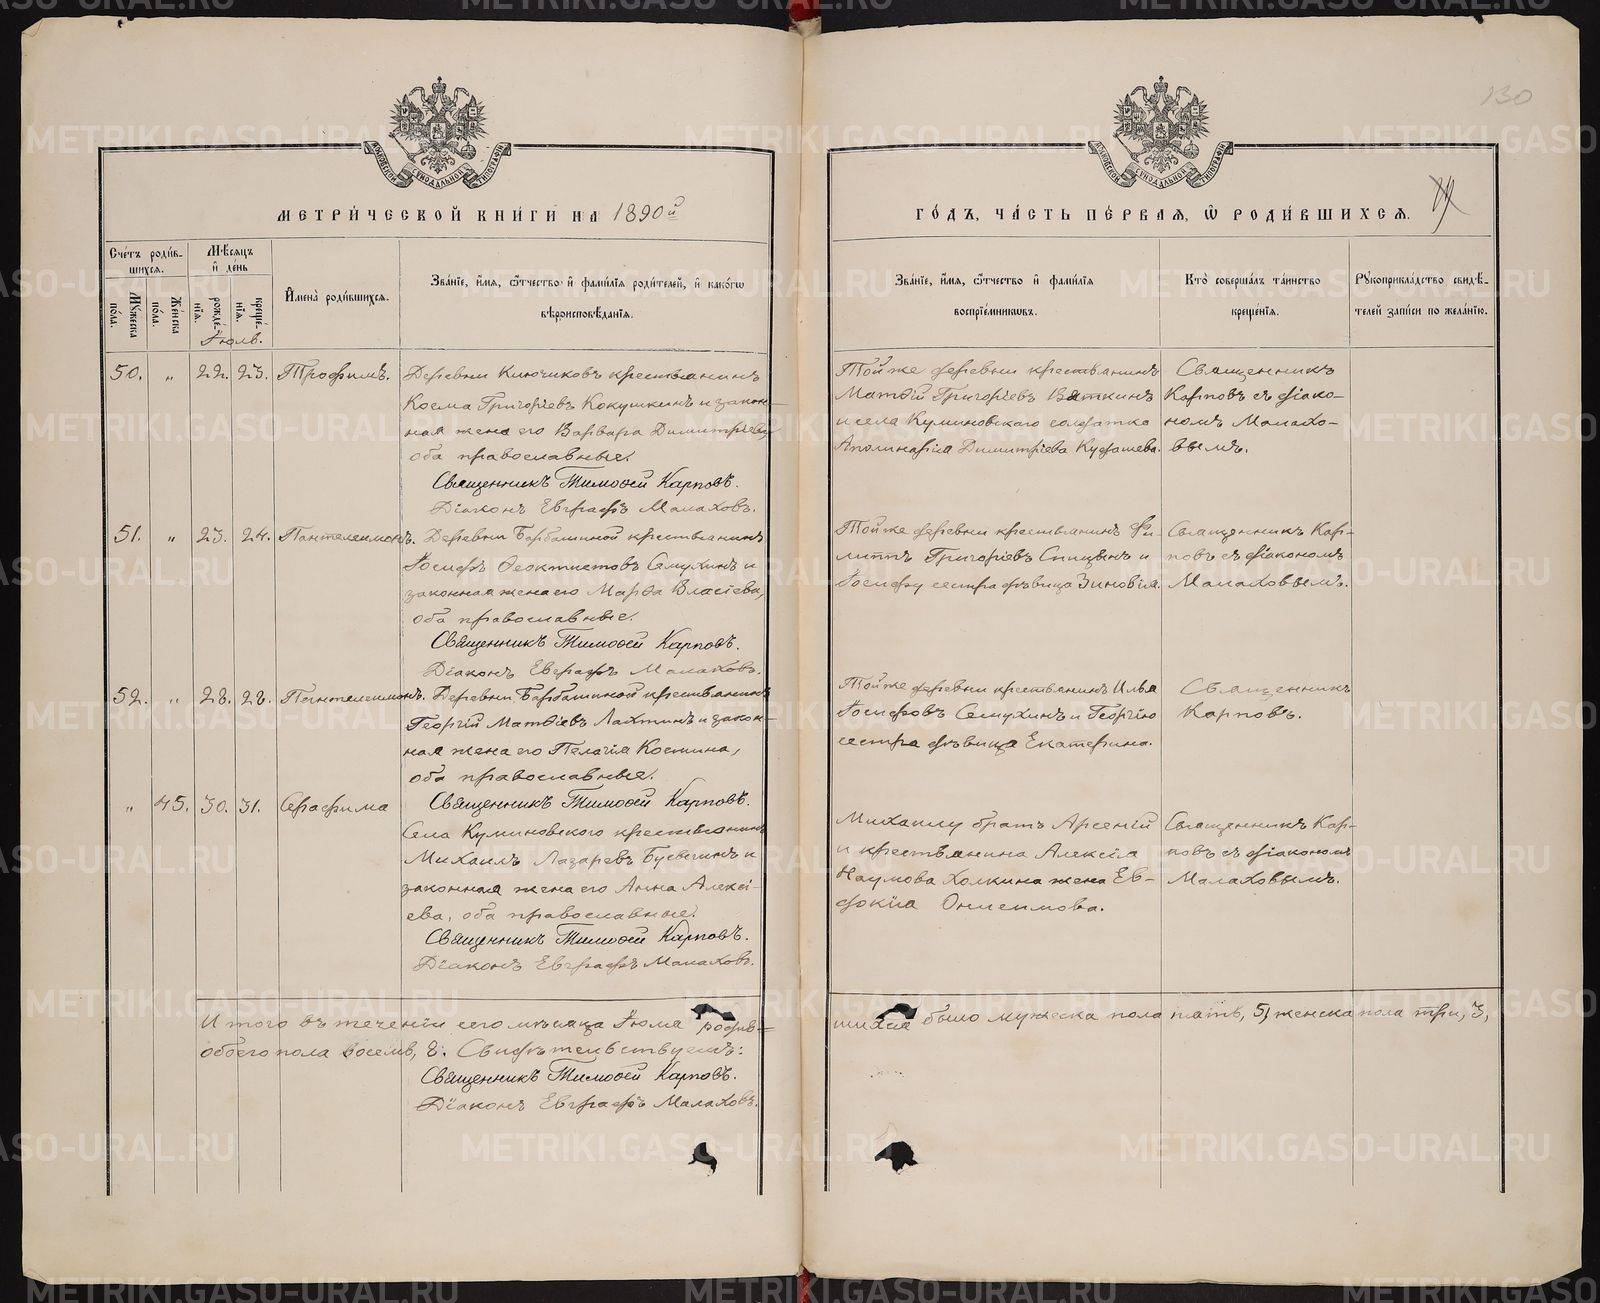 130
МЕТРИ́ЧЕСКОЙ КНИ́ГИ НА 1890й
ГО́ДЪ, ЧА́СТЬ ПЕ́РВАЯ, Ѿ РОДИ́ВШИХСЯ.
Сче́тъ роди́в-
шихся.
Мꙋ́жеска по́ла.
Же́нска по́ла.
Мѣ́сяцъ и де́нь
рожде́нія.
креще́нія.
Іюль.
Имена̀ роди́вшихся.
Зва́нїе, и́мя, ѻ҆́тчество и фами́лїя роди́телей, и како́гѡ
вѣроисповѣ́данїя.
Зва́нїе, и́мя, ѻ҆́тчество и фами́лїя
воспрїе́мниковъ.
Кто̀ соверша́лъ та́инство
креще́нїя.
Рꙋкоприкла́дство свидѣ́-
телей за́писи по жела́нїю.
50. „ 22. 23. Трофимъ.
Деревни Ключиковъ крестьянинъ
Косма Григоріевъ Кокушкинъ и закон-
ная жена его Варвара Димитріева
оба православные.
Священникъ Тимоѳей Карповъ.
Діаконъ Евграфъ Малаховъ.
Той же деревни крестьянинъ
Матѳій Григоріевъ Вяткинъ
и села Куминовскаго солдатка
Аполинарія Димитріева Кудашева.
Священникъ
Карповъ съ діако-
номъ Малахо-
вымъ.
51. „ 23. 24. Пантелеимонъ.
Деревни Барбашиной крестьянинъ
Іосифъ Ѳеоктистовъ Семухинъ и
законная жена его Марѳа Власіева,
оба православные.
Священникъ Тимоѳей Карповъ.
Діаконъ Евграфъ Малаховъ.
Той же деревни крестьянинъ Фи-
липпъ Григоріевъ Спицынъ и
Іосифу сестра дѣвица Зиновія.
Священникъ Кар-
повъ съ діакономъ
Малаховымъ.
52. „ 28. 28. Пантелеимонъ.
Деревни Барбашиной крестьянинъ
Георгій Матѳіевъ Лахтинъ и закон-
ная жена его Пелагія Космина,
оба православные.
Священникъ Тимоѳей Карповъ.
Той же деревни крестьянинъ Илья
Іосифовъ Семухинъ и Георгію
сестра дѣвица Екатерина.
Священникъ
Карповъ.
„ 45. 30. 31. Серафима
Села Куминовскаго крестьянинъ
Михаилъ Лазаревъ Бусыгинъ и
законная жена его Анна Алексі-
ева, оба православные.
Священникъ Тимоѳей Карповъ.
Діаконъ Евграфъ Малаховъ.
Михаилу братъ Арсеній
и крестьянина Алексія
Наумова Холкина жена Ев-
докія Онисимова.
Священникъ Кар-
повъ съ діакономъ
Малаховымъ.
Итого въ теченіи сего мѣсяца Іюля родив-
шихся было мужеска пола пять, 5, женска пола три, 3,
обоего пола восемь, 8. Свидѣтельствуемъ:
Священникъ Тимоѳей Карповъ.
Діаконъ Евграфъ Малаховъ.
METRIKI.GASO-URAL.RU